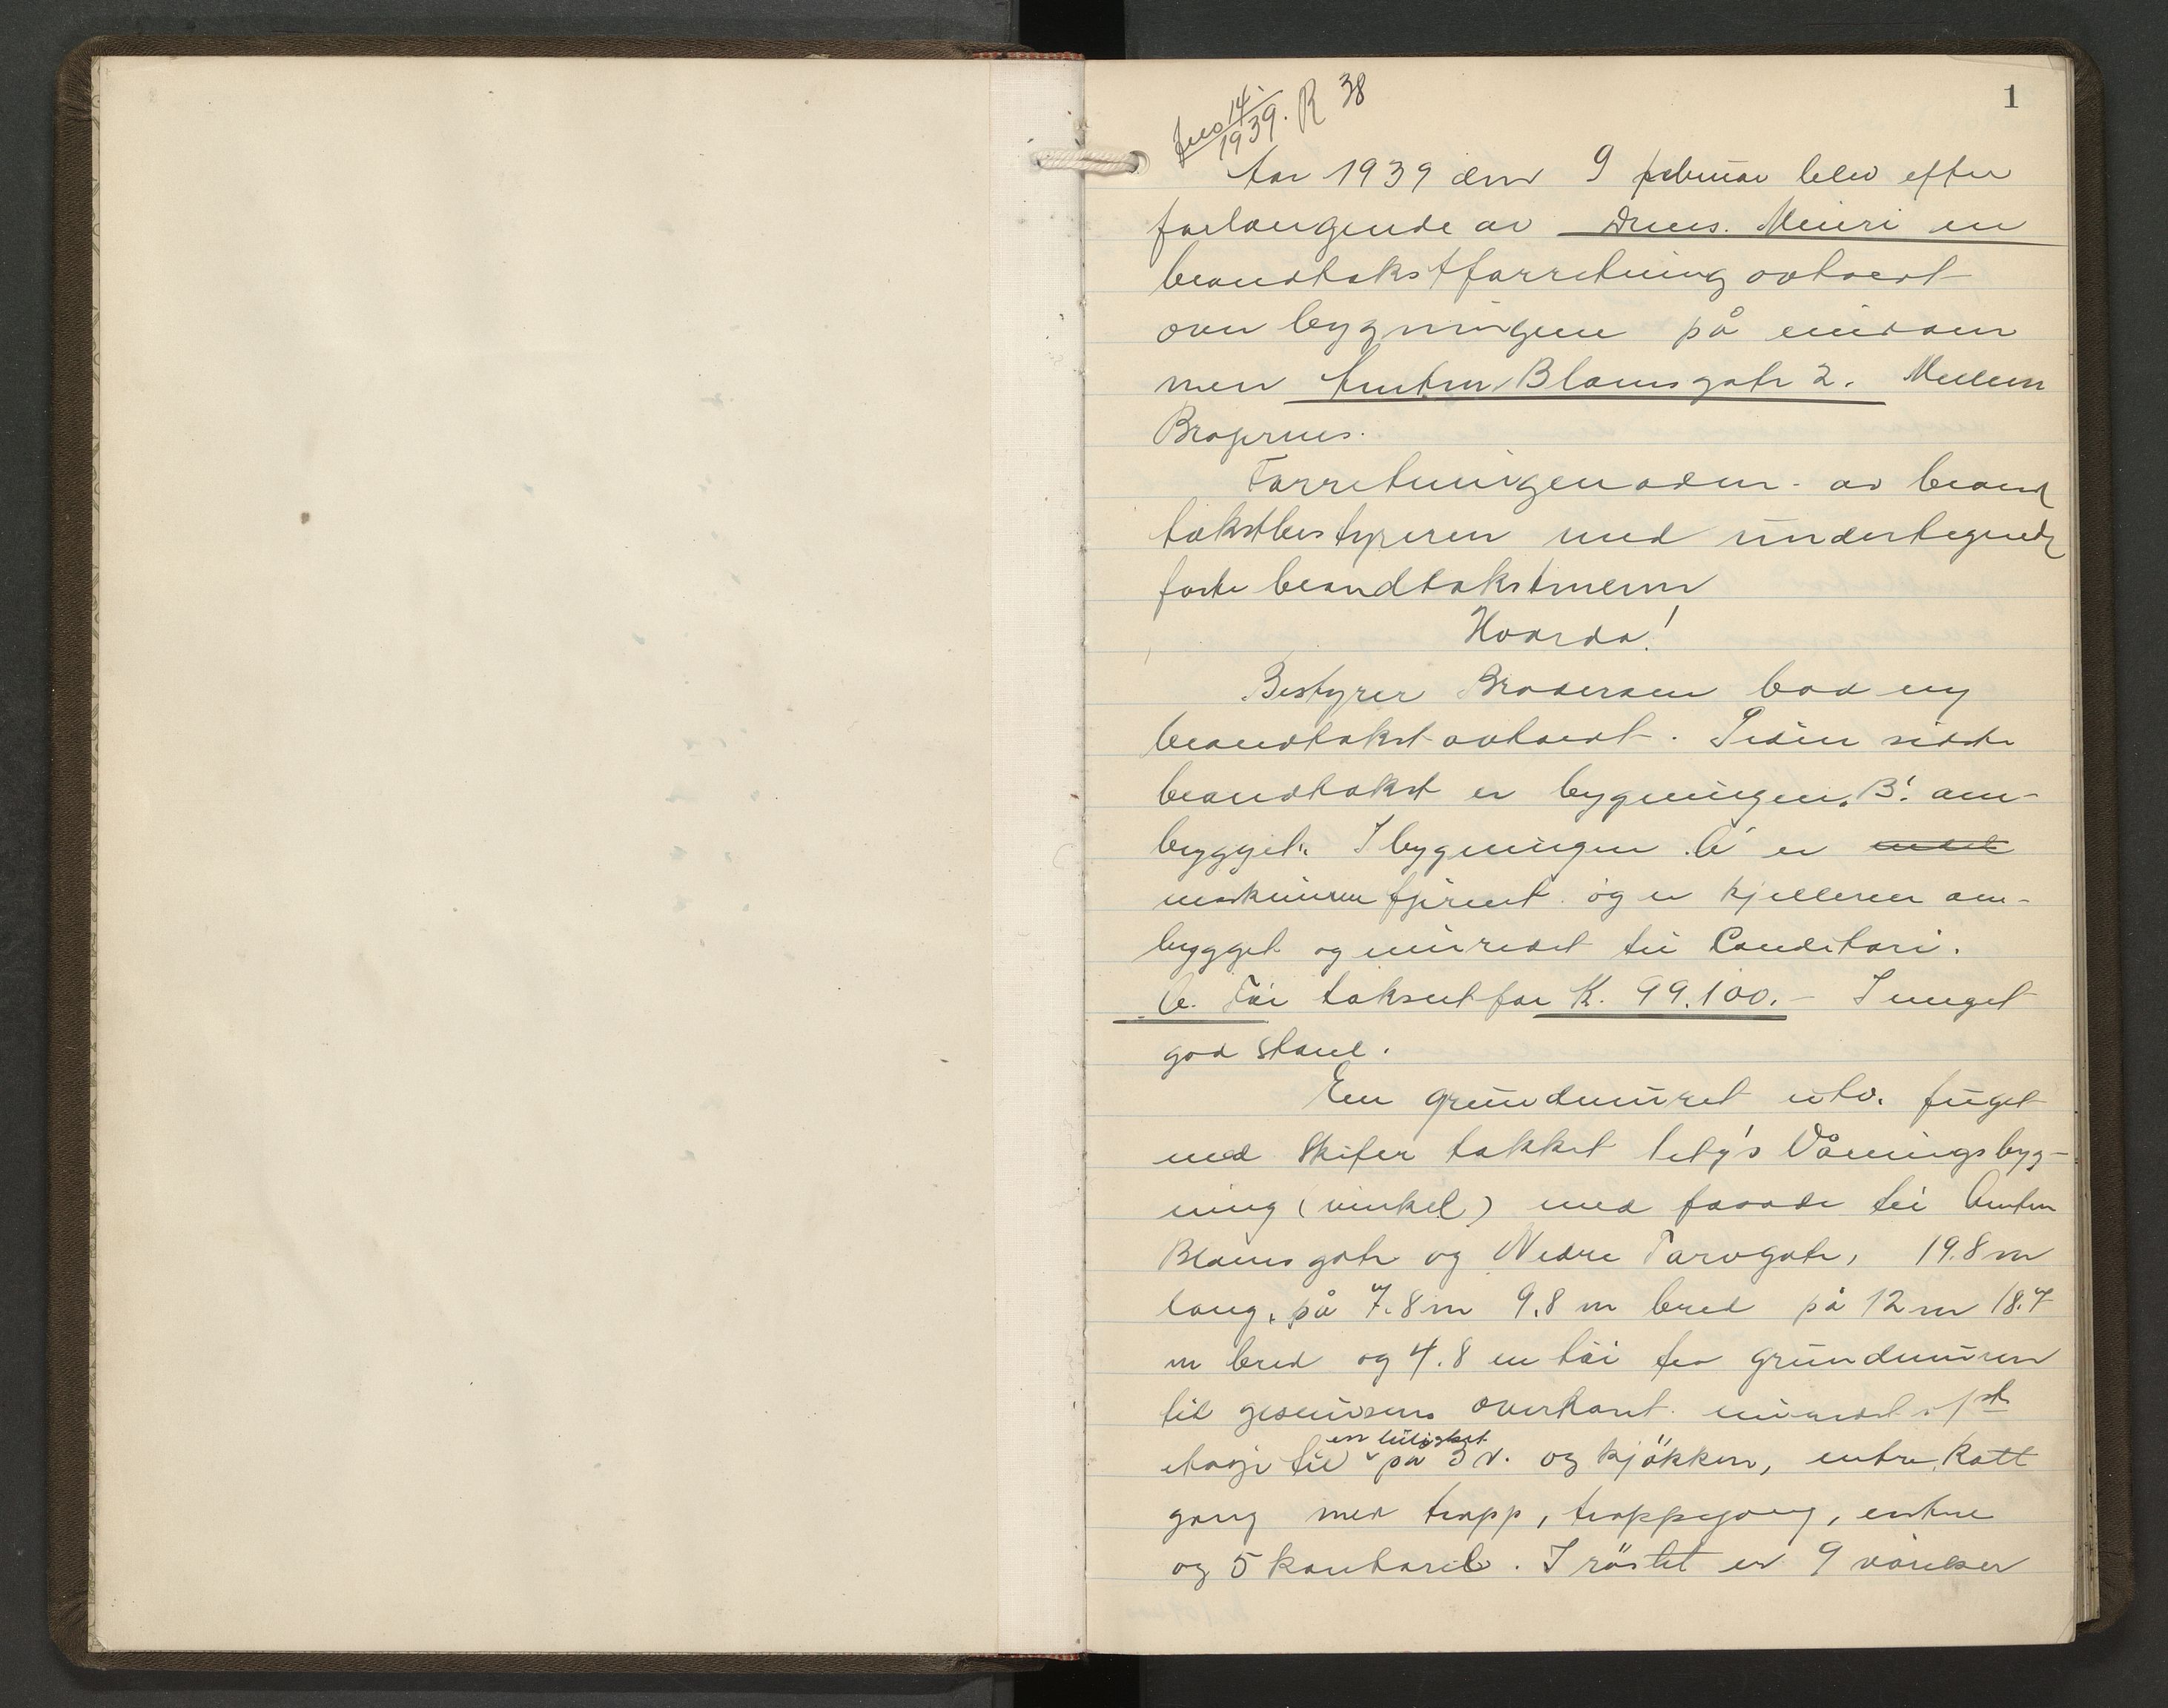 1
14/
1939. R 38
År 1939 den 9 februar blev efter
forlangende av Dms. Meieri en
brandtakstforretning avholdt
over bygningene på eiendom
men Anton Blomsgate 2. Mellem
Bragernes.
Forretningen adm. av brand
takstbestyreren med undertegnede
faste brandtakstmenn
Hvorda!
Bestyrer Brodersen bad ny
brandtakst avholdt. Siden siste
brandtakst er bygningen B. om-
bygget. I bygningen A er
maskineri fjernet og er kjelleren om-
bygget og innredet til Conditori.
A. Før taksert for K. 99.100.- I meget
god stand.
En grundmuret utv. fuget
med Skifer takket 1 etg's Våningsbyg-
ning (vinkel) med fasade til Anton
Blomsgate og Nedre Torvgate, 19.8 m
lang, på 7.8 m 9.8 m bred på 12 m 18.7
m bred og 4.8 m høi fra grundmuren
til gesimsens overkant. innredet i 1ste
etasje til en leilighet på 3 v. og kjökken, entre, kott
gang med trapp, trappegang, entre
og 5 kontorer. I röstet er 9 værelser